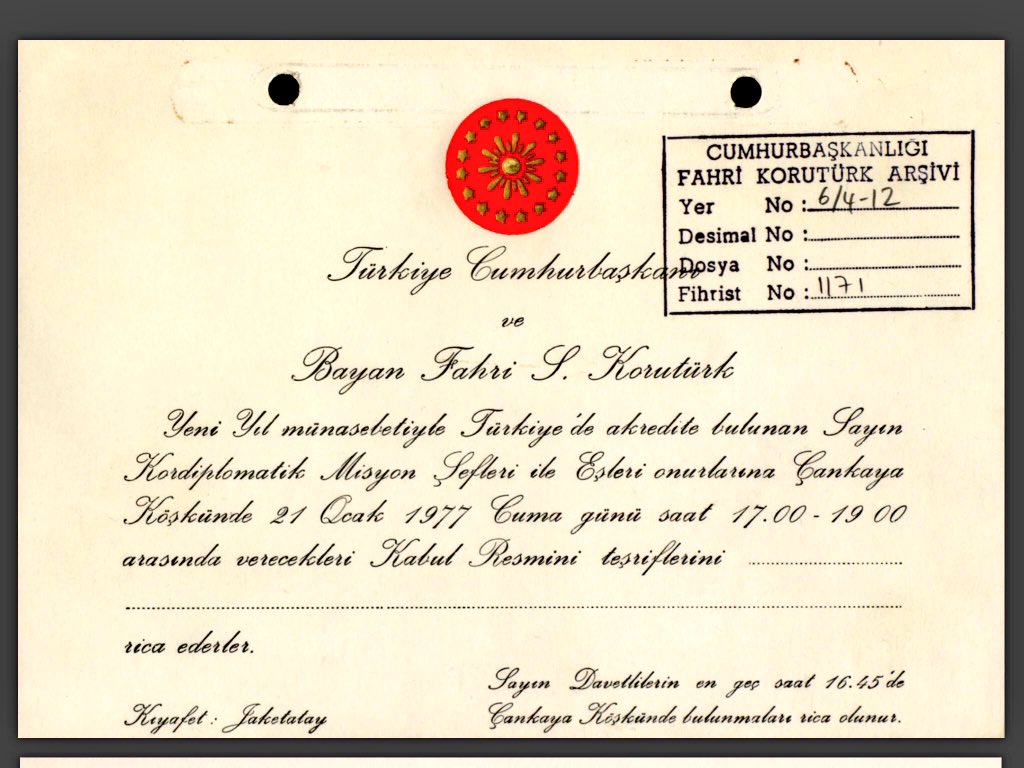 CUMHURBAŞKANLIĞI
FAHRİ KORUTÜRK ARŞİVİ
Yer No : 6/4-12
Desimal No :
Dosya No :
Fihrist No : 1171
Türkiye Cumhurbaşkanı
ve
Bayan Fahri S. Korutürk
Yeni Yıl münasebetiyle Türkiye'de akredite bulunan Sayın
Kordiplomatik Misyon Şefleri ile Eşleri onurlarına Çankaya
Köşkünde 21 Ocak 1977 Cuma günü saat 17.00 - 19 00
arasında verecekleri Kabul Resmini teşriflerini
rica ederler.
Sayın Davetlilerin en geç saat 16.45'de
Kıyafet : Jaketatay Çankaya Köşkünde bulunmaları rica olunur.